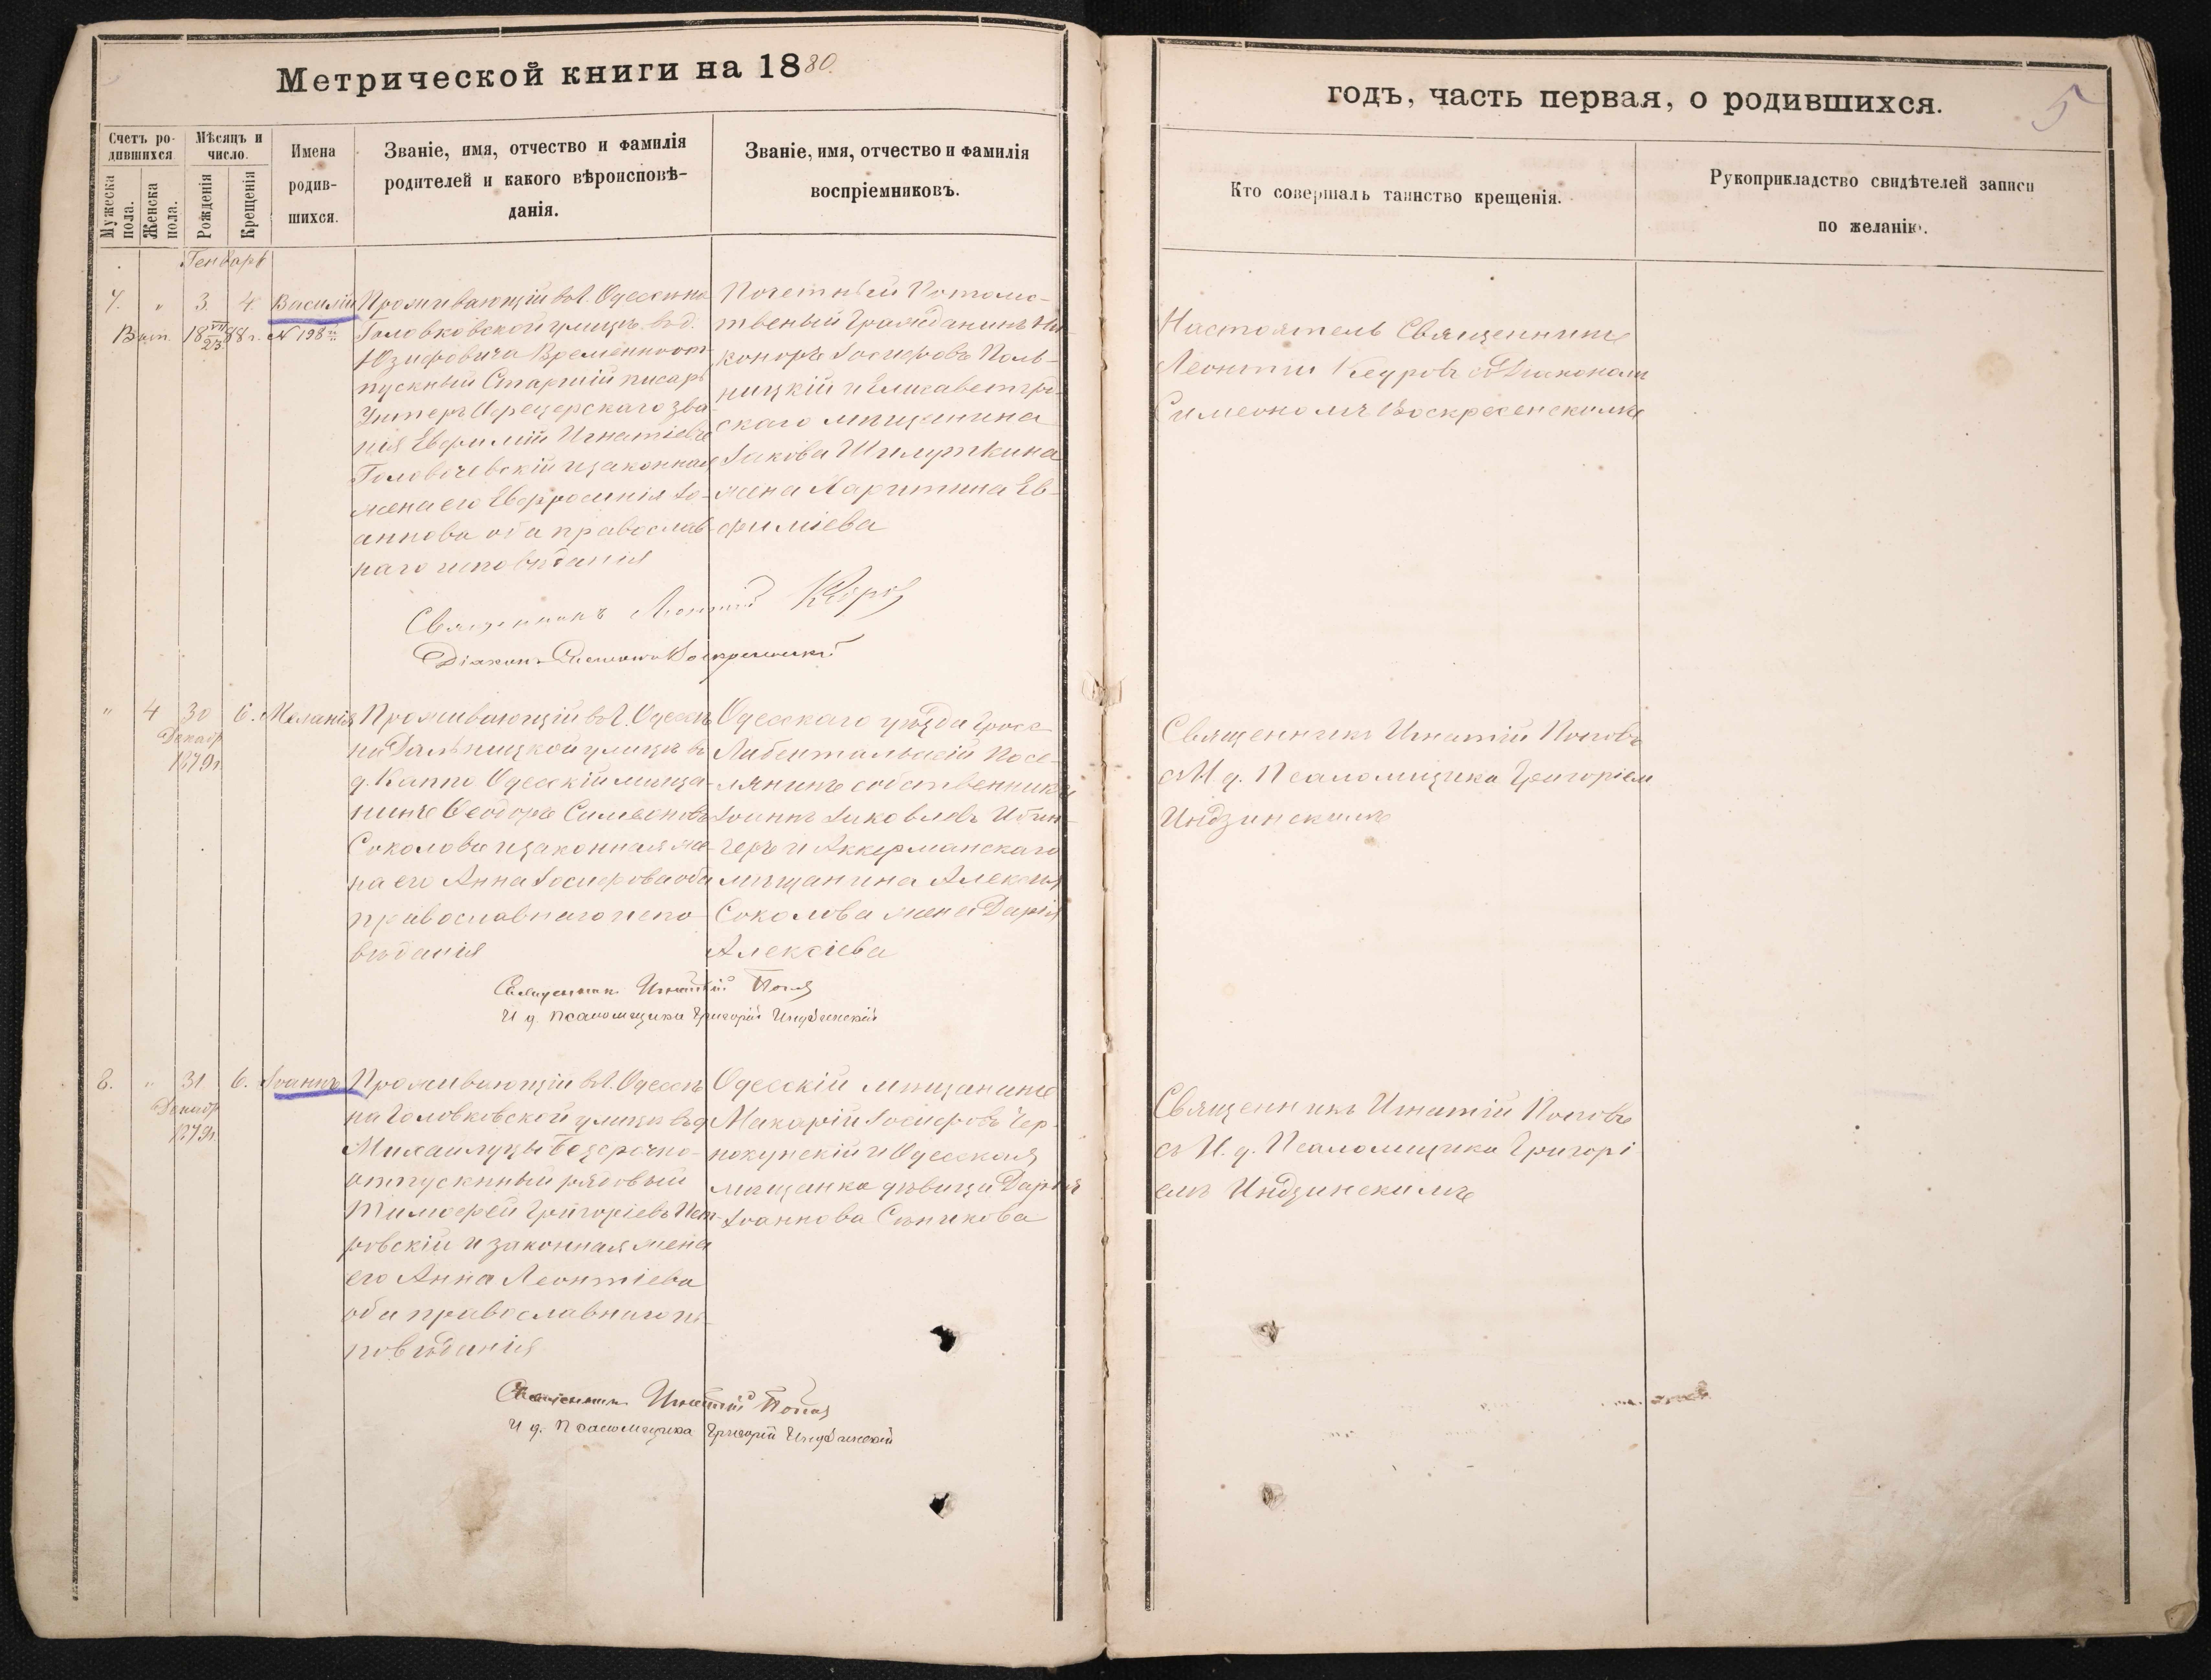 Метрической книги на 1880.
годъ, часть первая, о родившихся.
5
Счетъ ро-
дившихся
Мужеска
пола.
Женска
пола.
Мѣсяцъ и
число.
Рожденія
Крещенія
Имена
родив-
шихся.
Званіе, имя, отчество и фамилія
родителей и какого вѣроисповѣ-
данія.
Званіе, имя, отчество и фамилія
воспріемниковъ.
Кто совершалъ таинство крещенія.
Рукоприкладство свидѣтелей записи
по желанію.
Генварь
7. " 3. 4. Василій
Выт. 18 VII/23 88 г. № 198
Проживающій въ г. Одессѣ на
Головковской улицѣ въ д.
Юзифовича Временноот-
пускный Старшій писарь
Унтеръ Офицерскаго зва-
нія Евфимій Игнатіевъ
Головачевскій и законная
жена его Евфросинія Іо-
аннова оба православ-
наго исповѣданія
Почетный Потомс-
твенный Гражданинъ Ни-
коноръ Іосифовъ
и Елисаветгрд-
скаго мѣщанина
Іакова
жена Харитина Ев-
фиміева
Настоятель Священникъ
Леонтій Кедровъ съ Діакономъ
Симеономъ Воскресенскимъ
Священникъ Леонтій Кедровъ
Діаконъ Симеонъ Воскресенскій
" 4 30 6. Меланія
Декабр
1879 г.
Проживающій въ г. Одессѣ
на Дальницкой улицѣ въ
д. Каппо Одесскій мѣща-
нинъ Ѳеодоръ Симеоновъ
Соколовъ и законная же-
на его Анна Іосифова оба
православнаго испо-
вѣданія
Одесскаго уѣзда Гросс
Либентальскій Посе-
лянинъ собственникъ
Іоаннъ Іаковлевъ
и Аккерманскаго
мѣщанина Алексія
Соколова жена Дарія
Алексіева
Священникъ Игнатій Поповъ
съ И. д. Псаломщика Григоріем
Индзинскимъ
Священникъ Игнатій Поповъ
И д. Псаломщика Григорій Индзинскій
8. " 31 6. Іоаннъ
Декабр
1879 г.
Проживающій въ г. Одессѣ
на Головковской улицѣ въ д
Михайлуцы Безсрочно-
отпускный рядовый
Тимофей Григоріевъ Пет-
ровскій и законная жена
его Анна Леонтіева
оба православнаго ис-
повѣданія
Одесскій мѣщанинъ
Макарій Іосифовъ Чер-
нокунскій и Одесская
мѣщанка дѣвица Дарія
Іоаннова Сѣчикова
Священникъ Игнатій Поповъ
съ И. д. Псаломщика Григорі
емъ Индзинскимъ
Священникъ Игнатій Поповъ
И д. Псаломщика Григорій Индзинскій